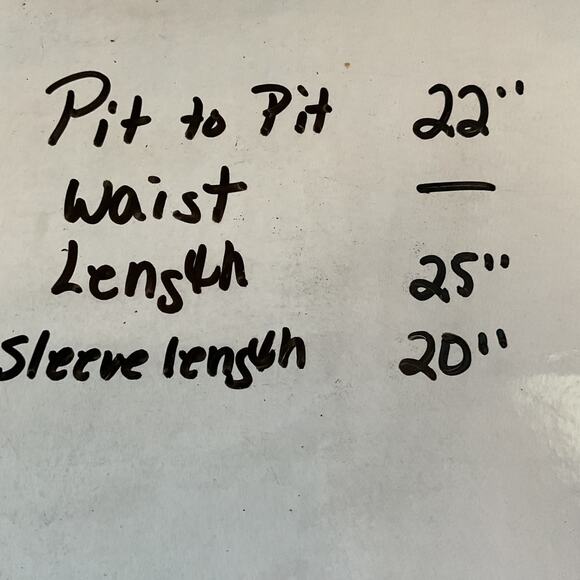 Pit to Pit 22"
Waist —
Length 25"
Sleeve length 20"